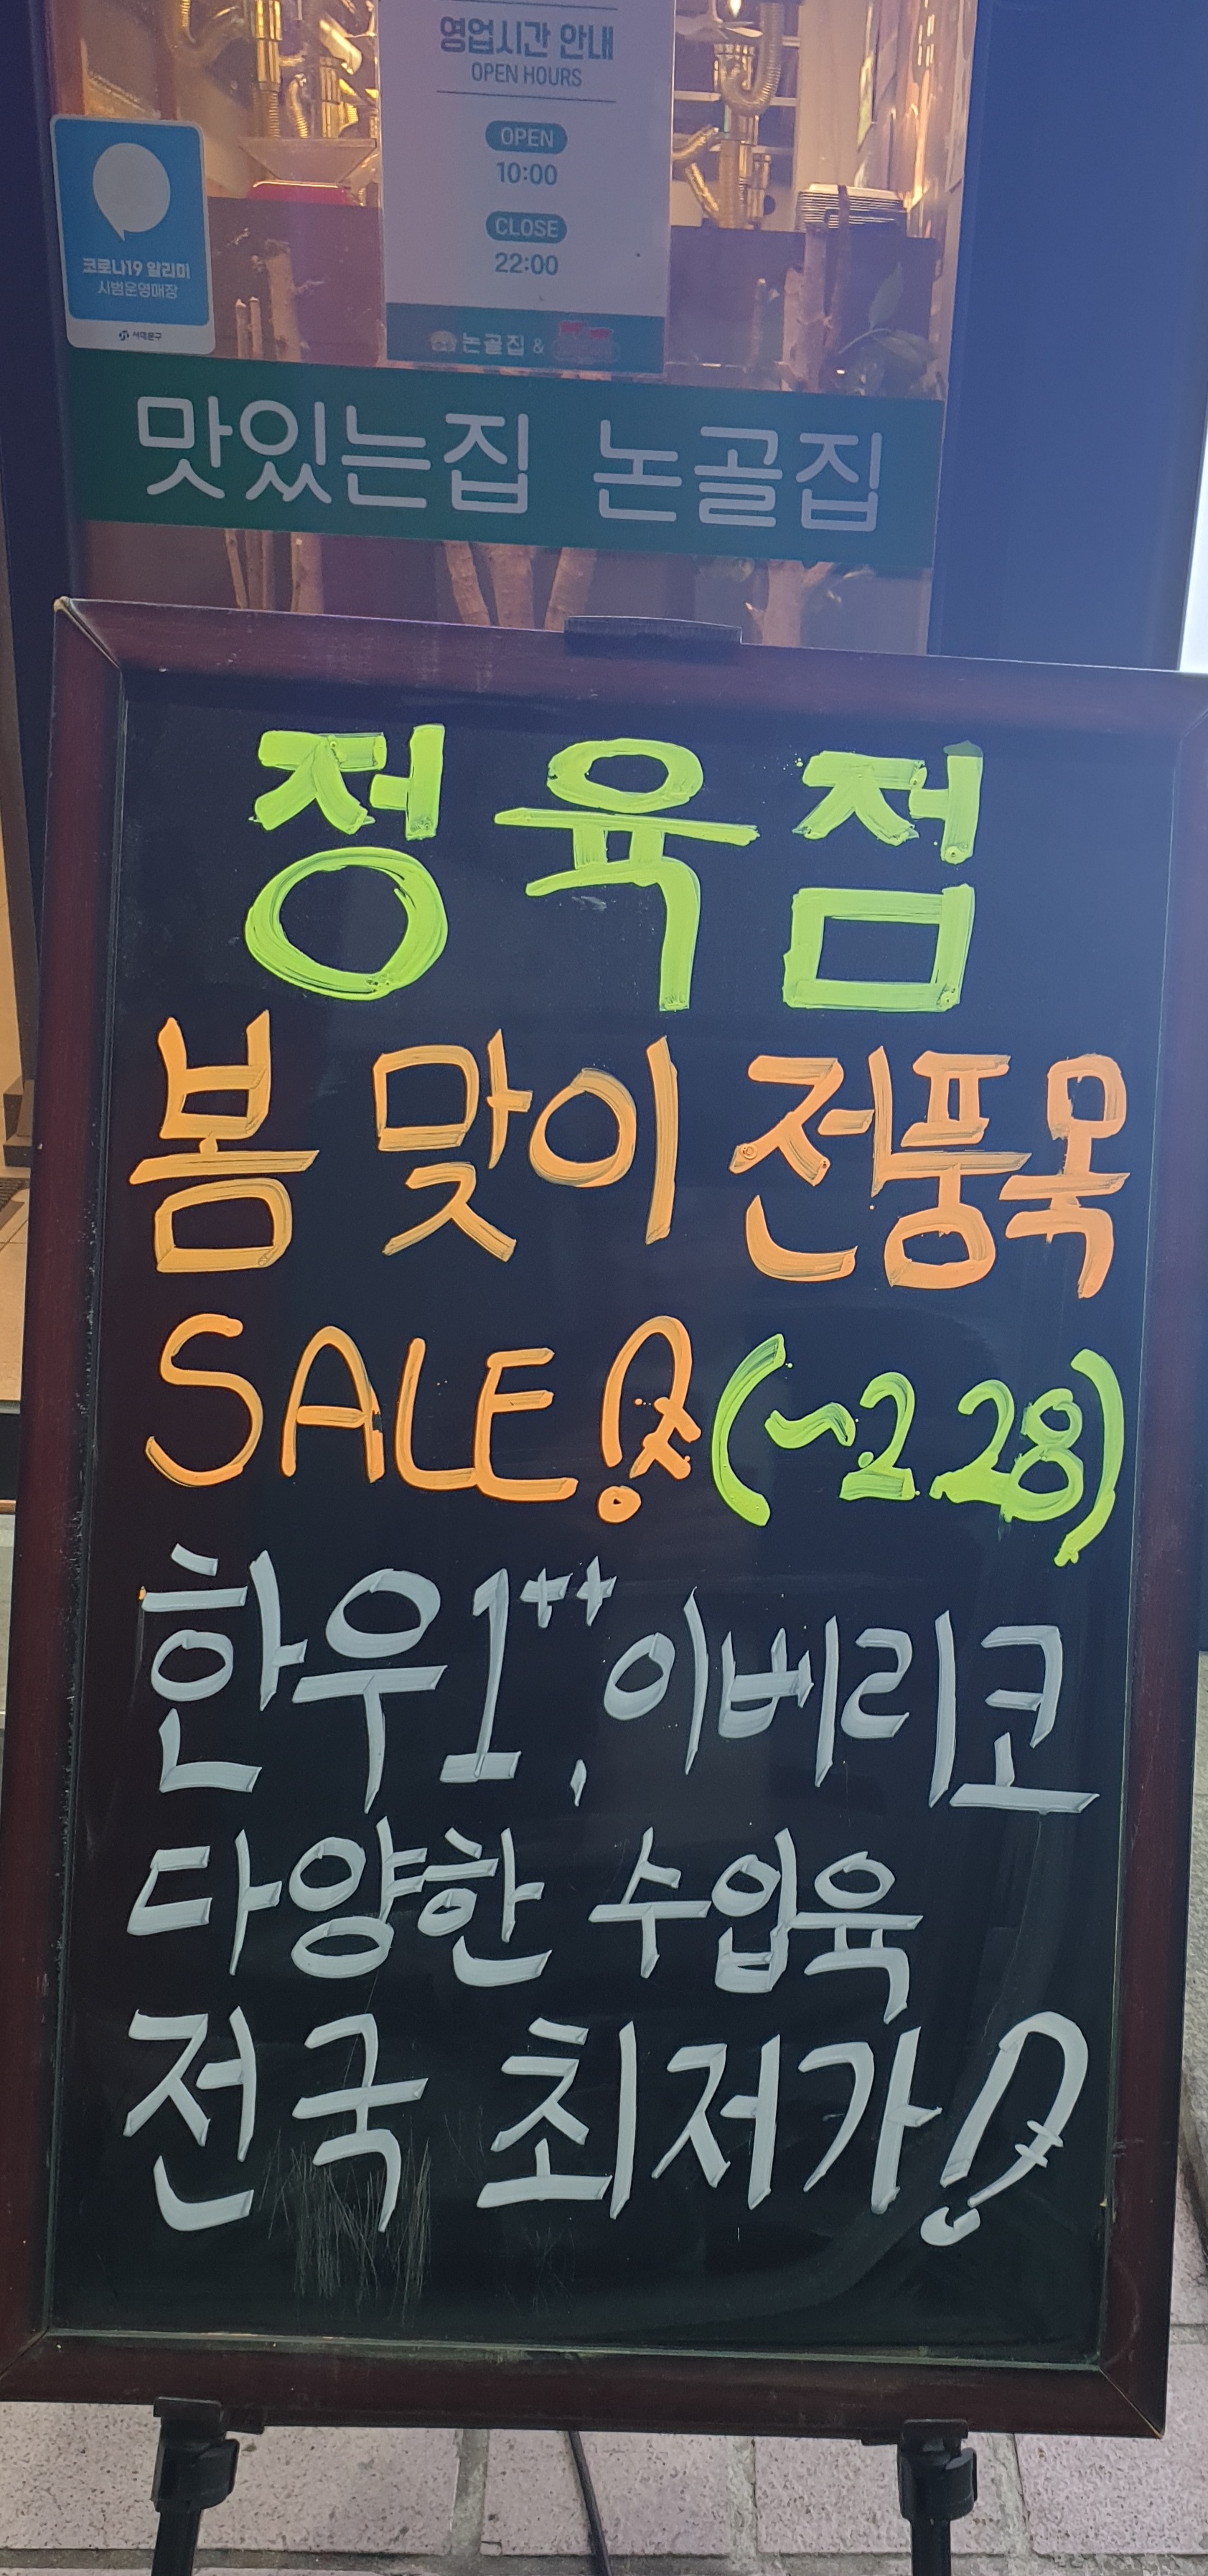 영업시간 안내
OPEN HOURS
OPEN
10:00
CLOSE
22:00
코로나19 알리미
시범운영매장
서대문구
논골집 &
맛있는집 논골집
정육점
봄 맞이 전품목
SALE! (~2.28)
한우1++, 이베리코
다양한 수입육
전국 최저가!